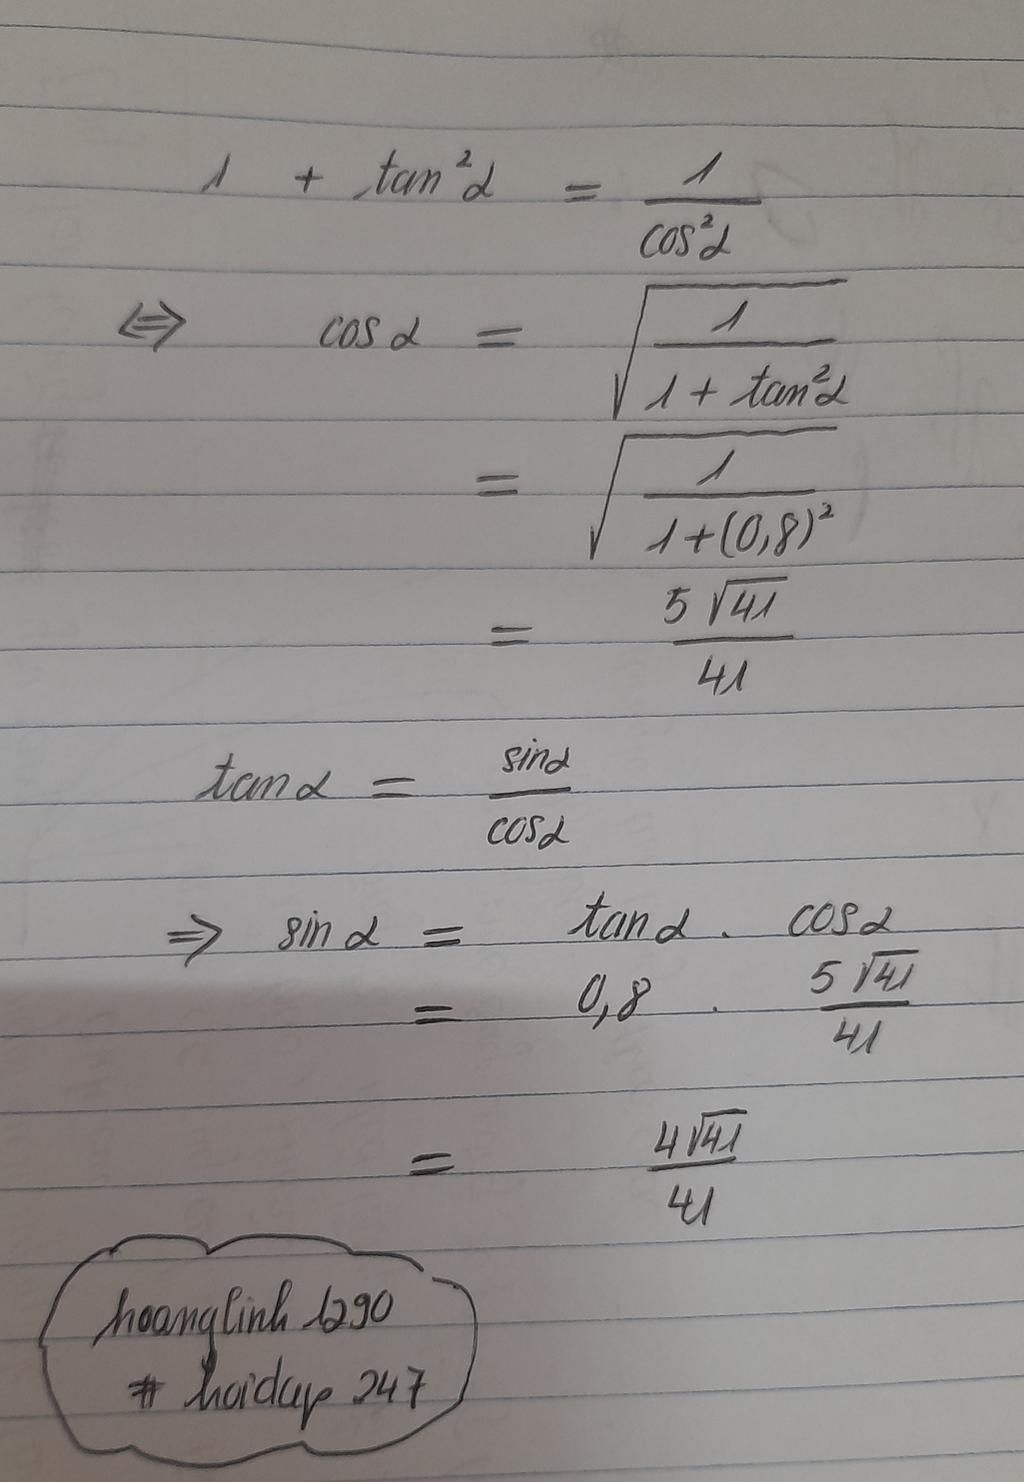 1 + tan²α = 1/cos²α
⇔ cosα = √(1/(1 + tan²α))
= √(1/(1+(0,8)²))
= 5√41/41
tanα = sinα/cosα
⇒ sinα = tanα . cosα
= 0,8 . 5√41/41
= 4√41/41
hoanglinh 1290
# hoidap 247